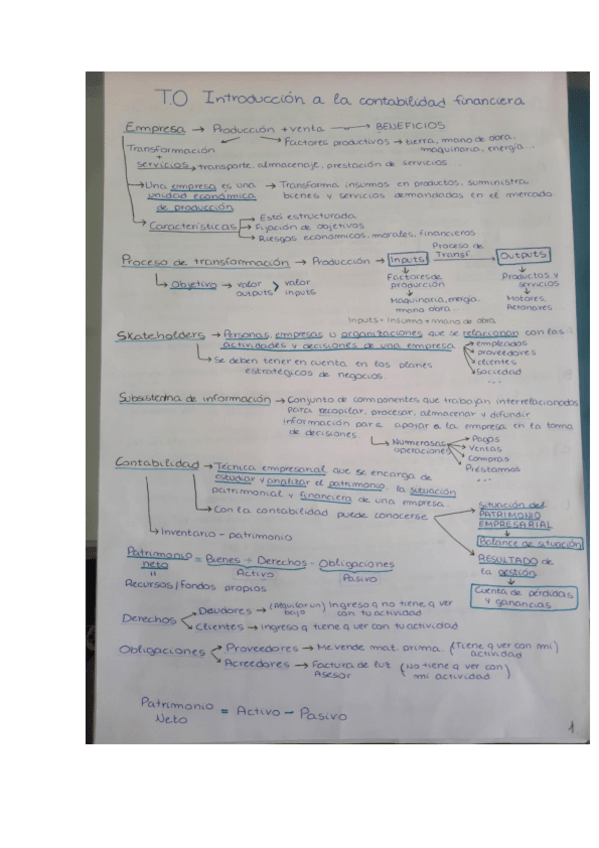 T.0 Introducción a la contabilidad financiera
Empresa → Producción + venta → BENEFICIOS
Transformación + servicios → transporte, almacenaje, prestación de servicios...
Factores productivos → tierra, mano de obra, maquinaria, energía...
→ Una empresa es una unidad económica de producción → Transforma insumos en productos, suministra bienes y servicios demandados en el mercado.
→ Características → Está estructurada
→ Fijación de objetivos
→ Riesgos económicos, morales, financieros
Proceso de transformación → Producción → Inputs Proceso de Transf. Outputs
Inputs → Factores de producción → Maquinaria, energía, mano obra...
Outputs → Productos y servicios → Motores, Aeronaves...
→ Objetivo → valor outputs > valor inputs
Inputs = Insumo + mano de obra
Skateholders → Personas, empresas u organizaciones que se relacionan con las
actividades y decisiones de una empresa
→ empleados
→ proveedores
→ clientes
→ sociedad
...
→ Se deben tener en cuenta en los planes
estratégicos de negocios.
Subsistema de información → Conjunto de componentes que trabajan interrelacionados
para recopilar, procesar, almacenar y difundir
información para apoyar a la empresa en la toma
de decisiones.
→ Numerosas operaciones → Pagos
→ Ventas
→ Compras
→ Préstamos
...
Contabilidad → Técnica empresarial que se encarga de
estudiar y analizar el patrimonio, la situación
patrimonial y financiera de una empresa.
→ Con la contabilidad puede conocerse
Situación del PATRIMONIO EMPRESARIAL → Balance de situación
RESULTADO de la gestión → Cuenta de pérdidas y ganancias
→ Inventario - patrimonio
Patrimonio neto = Bienes + Derechos - Obligaciones
Activo Pasivo
"
Recursos/fondos propios
Derechos → Deudores → (Alquilar un bajo) Ingreso q no tiene q ver con tu actividad
→ Clientes → ingreso q tiene q ver con tu actividad
Obligaciones → Proveedores → Me vende mat. prima. (Tiene q ver con mi actividad)
→ Acreedores → Factura de luz (No tiene q ver con mi actividad)
Asesor
Patrimonio Neto = Activo - Pasivo
1